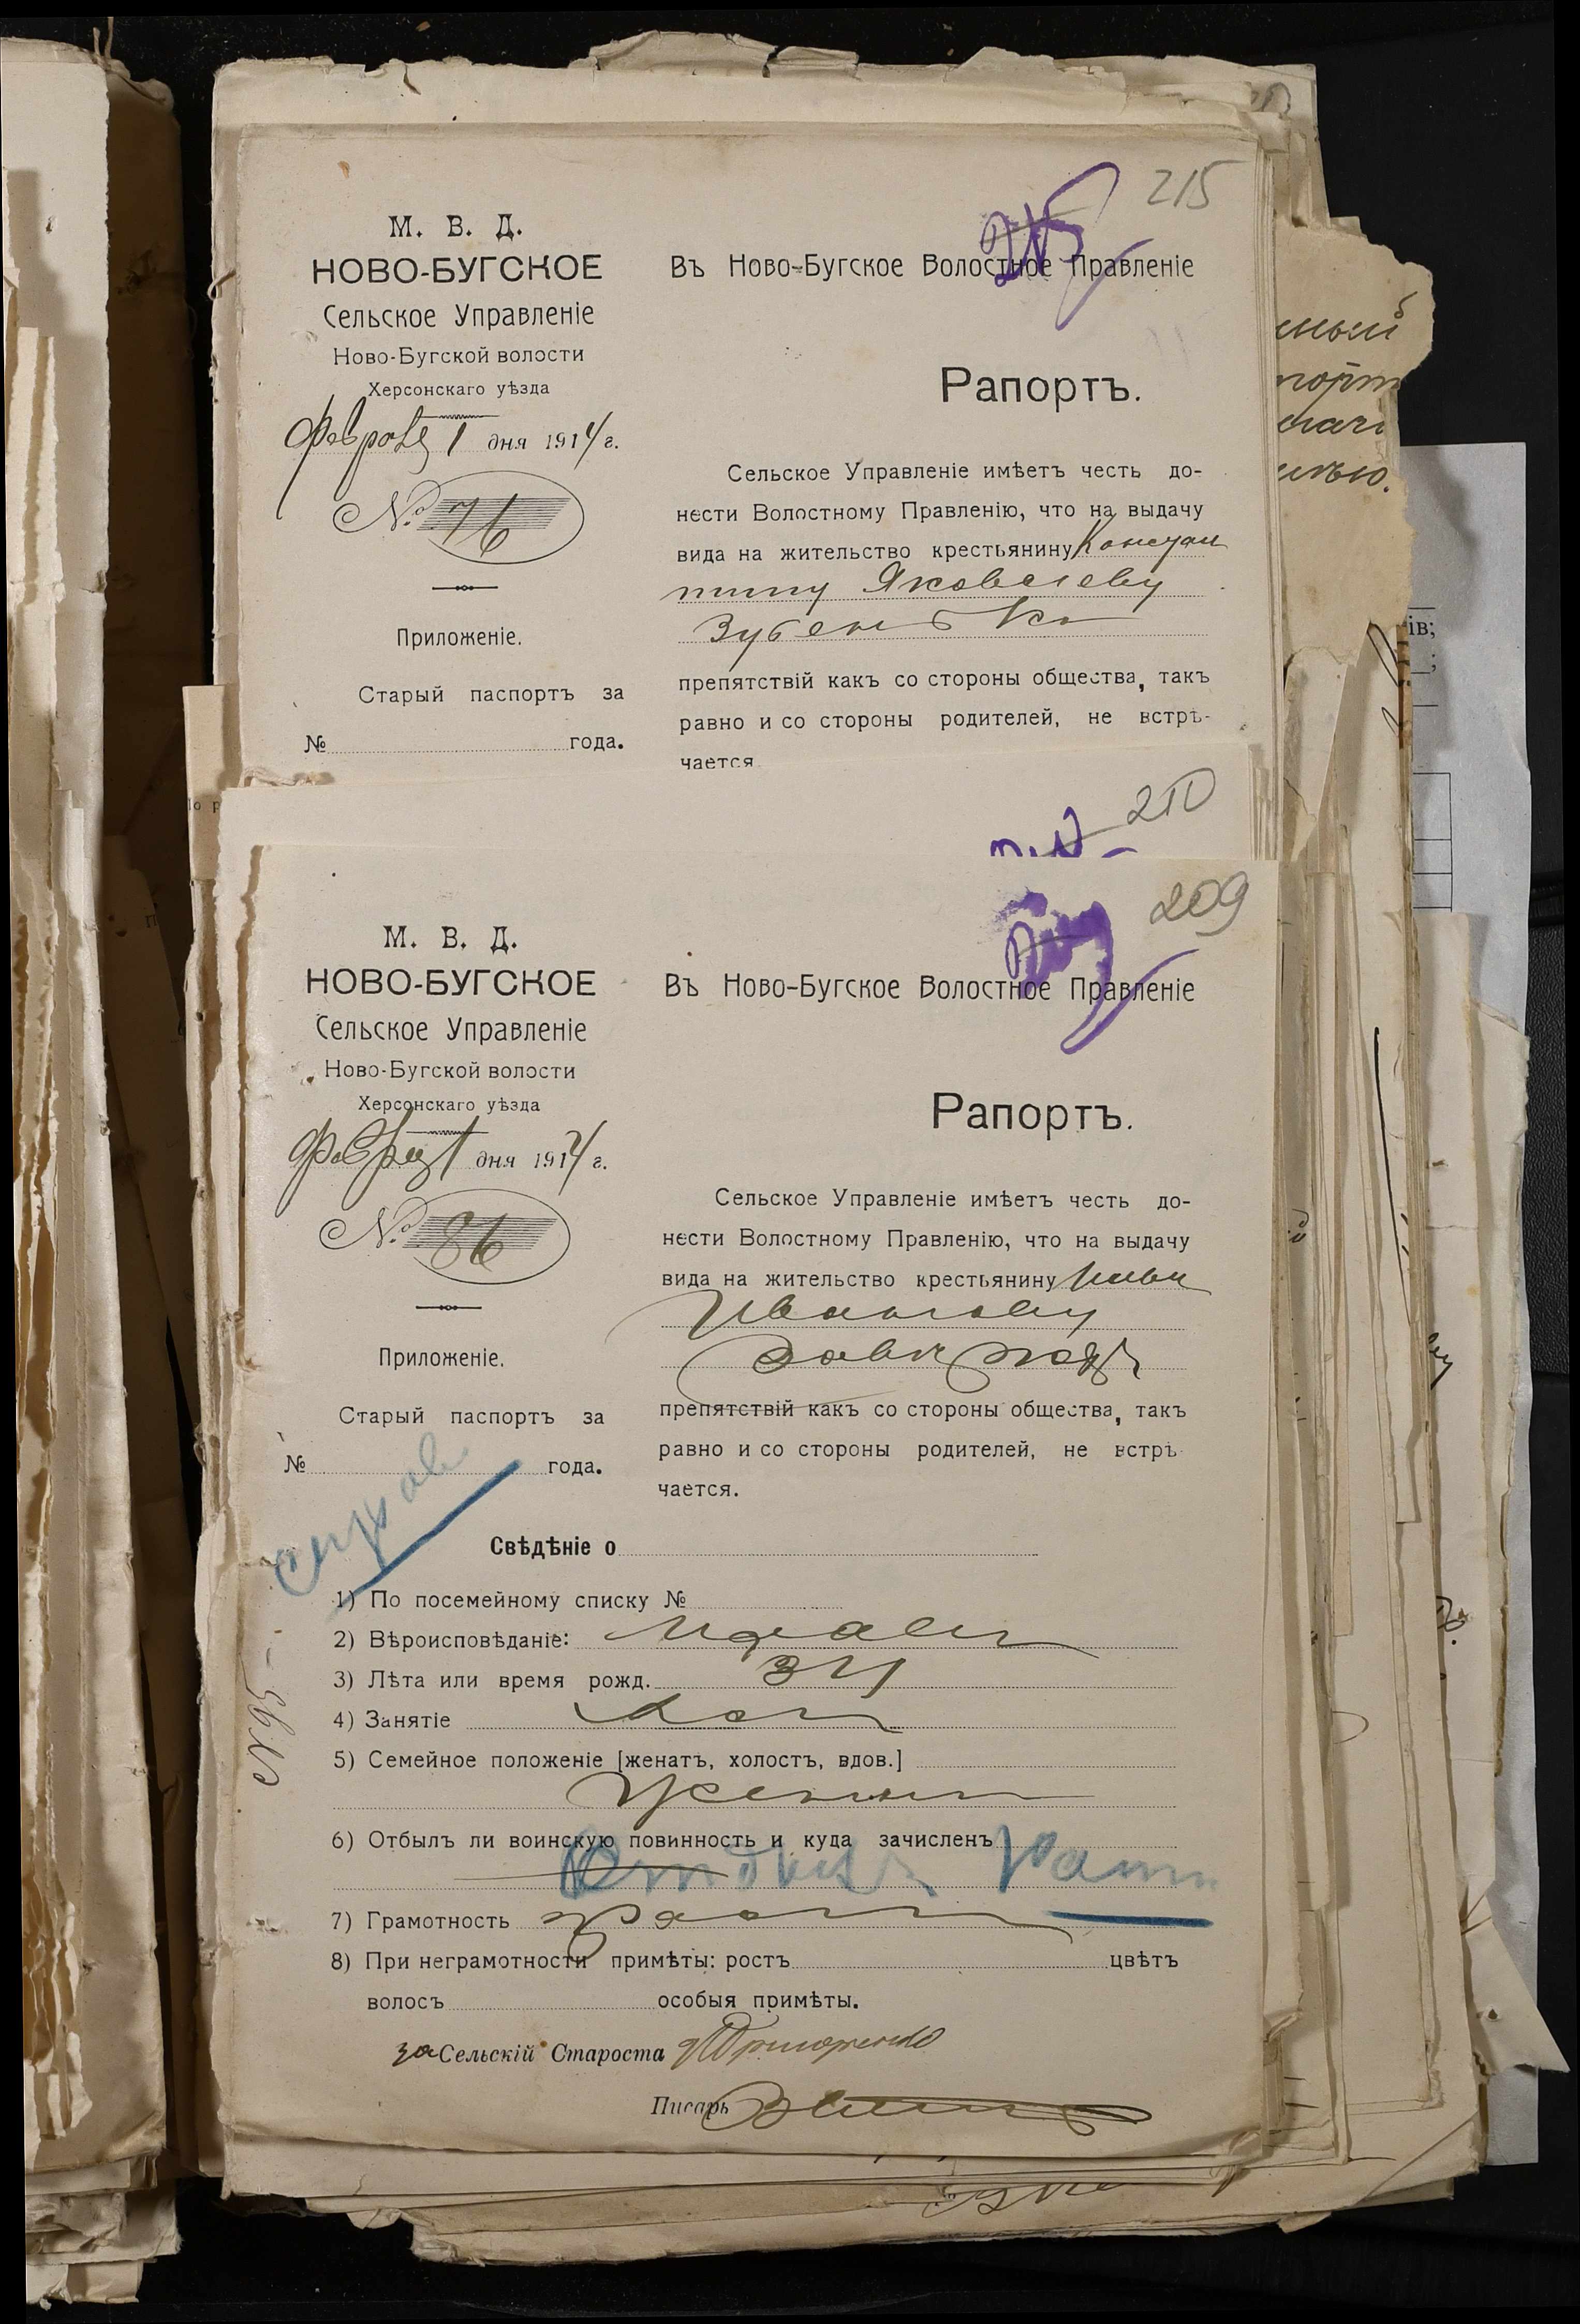 215
М. В. Д.
НОВО-БУГСКОЕ
Сельское Управленіе
Ново-Бугской волости
Херсонскаго уѣзда
1 дня 1914 г.
№ 76
Приложеніе.
Старый паспортъ за
№ года.
Въ Ново-Бугское Волостное Правленіе
Рапортъ.
Сельское Управленіе имѣетъ честь до-
нести Волостному Правленію, что на выдачу
вида на жительство крестьянину Констан
тину Яковлеву
Зубенько
препятствій какъ со стороны общества, такъ
равно и со стороны родителей, не встрѣ-
чается
210
209
М. В. Д.
НОВО-БУГСКОЕ
Сельское Управленіе
Ново-Бугской волости
Херсонскаго уѣзда
1 дня 1914 г.
№ 86
Приложеніе.
Старый паспортъ за
№ года.
Въ Ново-Бугское Волостное Правленіе
Рапортъ.
Сельское Управленіе имѣетъ честь до-
нести Волостному Правленію, что на выдачу
вида на жительство крестьянину
Иванову
препятствій какъ со стороны общества, такъ
равно и со стороны родителей, не встрѣ
чается.
Свѣдѣніе о
1) По посемейному списку №
2) Вѣроисповѣданіе:
3) Лѣта или время рожд. 34
4) Занятіе
5) Семейное положеніе [женатъ, холостъ, вдов.]
6) Отбылъ ли воинскую повинность и куда зачисленъ
7) Грамотность
8) При неграмотности примѣты: ростъ цвѣтъ
волосъ особыя примѣты.
за Сельскій Староста
Писарь